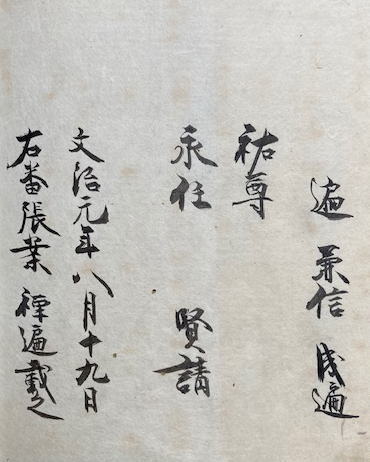 遍 兼信 成遍
祐尊
永任 賢請
文治元年八月十九日
右番張業 禅遍載之